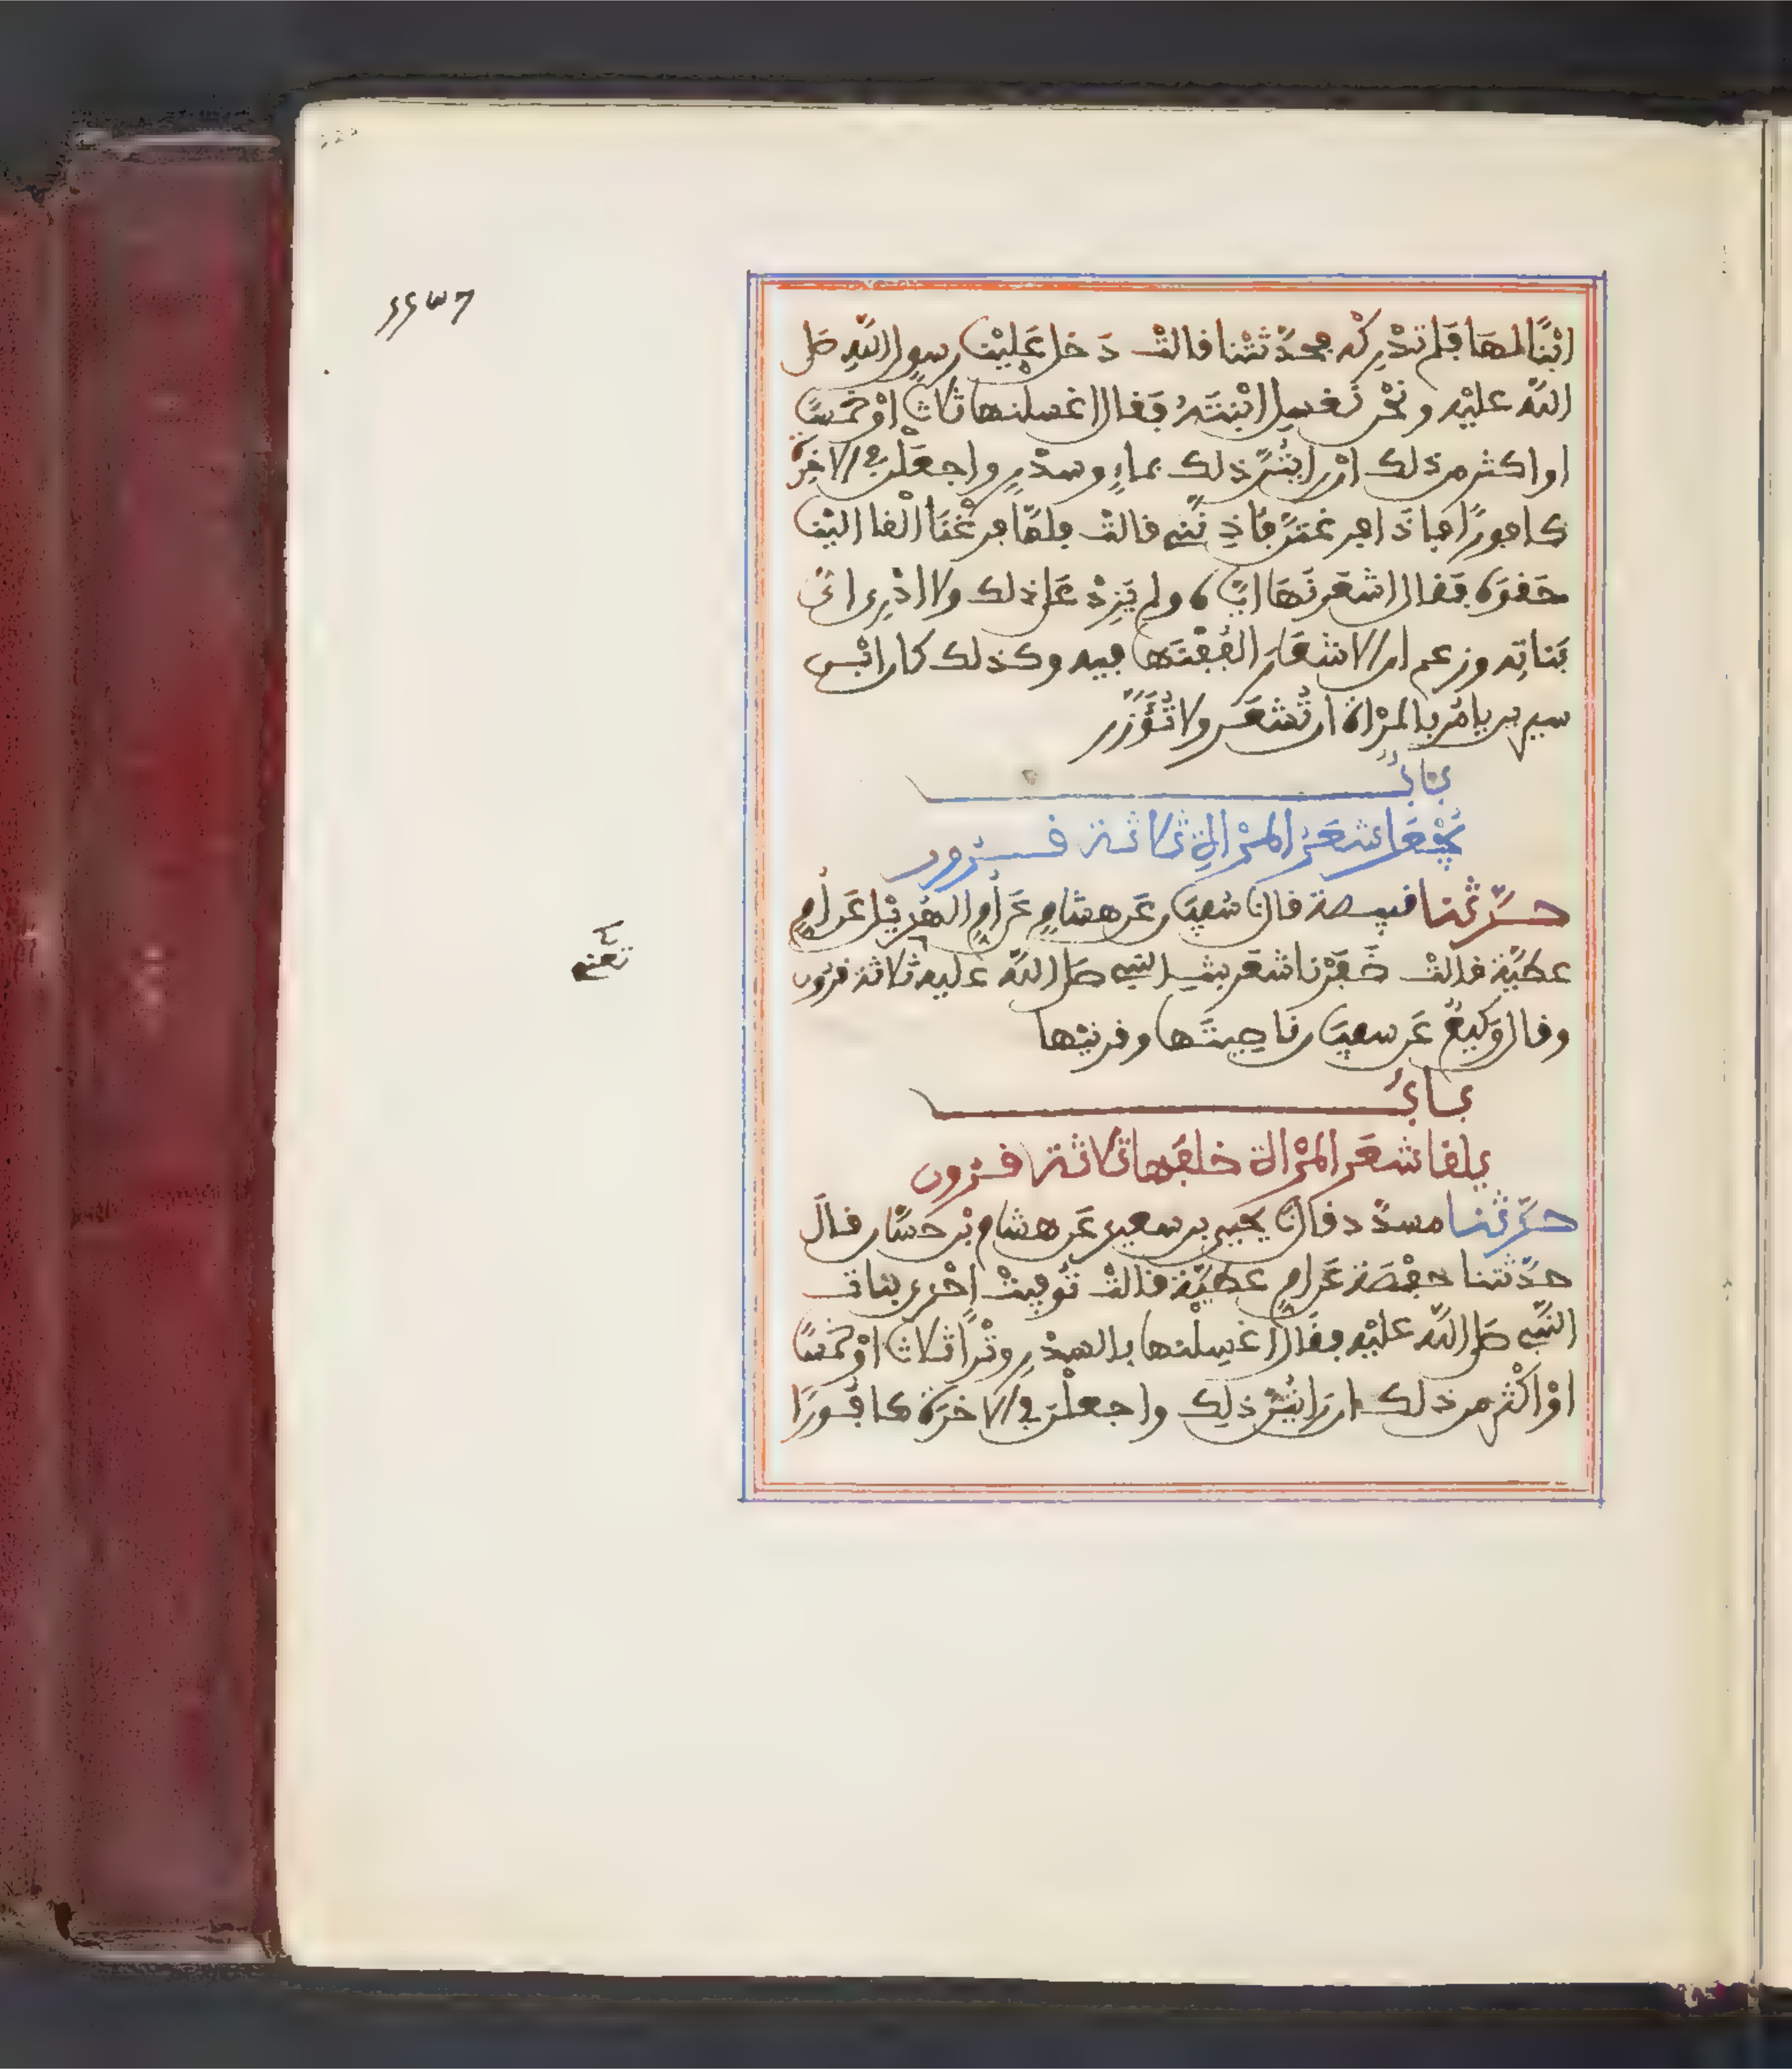 ابْنًا لهَا فلم تدْرِكْه فحدَّثتْنا قالتْ دَخل عَليْنا رسول اللّه صَلى
اللّه عليْه ونحْن نَغسِل ابْنتَهُ فقال اغسلنها ثلاثًا اوْ خمسًا
او اكثر من ذلك انْ رايْتُنَّ ذلك بماءٍ وسدْرٍ واجعَلْن في الاخِرة
كافورًا فإذَا فرغتنَّ فآذِنَّنِي قالتْ فلمَّا فرغْنَا ألْقا اليْنا
حَقوَه فقال اشعرنَهَا اياه ولم يَزِدْ عَلى ذلك ولا ادْرِي اىُّ
بَناتِه وزعم ان الاشعَارَ الفُفْنَها فيه وكذلك كان ابْن
سيرين يامُر بالمرْاة ان تُشعَر ولا تُؤَزَّر
بابُ
يُجْعَل شعَرُ المرْاةِ ثلاثة قرون
حدَّثنا قبيصة قال نا سُفيَان عَن هشامٍ عَن أمِّ الهُذيْل عَن أمِّ
عطيَّة قالتْ ضَفَرْنا شعَر بنتِ النبي صَلى اللّه عليه ثلاثة قرون
وقال وَكيعٌ عَن سفيَان ناصِيتَها وقرنيْها
بابُ
يلقا شعَر المرْاة خلفَها ثلاثة قرون
حدَّثنا مسدَّد قال نا يحيى بن سعيد عَن هشام بْن حَسَّان قالَ
حدَّثتنا حفْصَة عَن امِّ عطيَّة قالتْ تُوفيتْ احْدى بنات
النَّبِي صَلى اللّه عليْه فقَال اغسِلْنها بالسِدْرِ وتْرًا ثلاثا اوْ خمسًا
اوْ اكْثر من ذلك ان رَايْتُنَّ ذلِك واجعلْنَ في الاخرَة كافُورًا
تعني